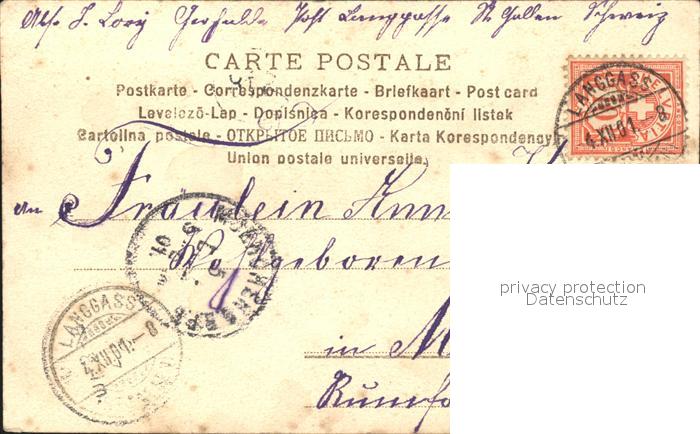 Abs. J. Lory Post Langgasse St. Gallen Schweiz
CARTE POSTALE
Postkarte - Correspondenzkarte - Briefkaart - Post card
Levelezö-Lap - Dopisnica - Korespondenční listek
Cartolina postale - ОТКРЫТОЕ ПИСЬМО - Karta Korespondency
Union postale universelle
LANGGASS
HELVETIA
an Fräulein
Wolgeboren
in M
LANGGASS
privacy protection
Datenschutz